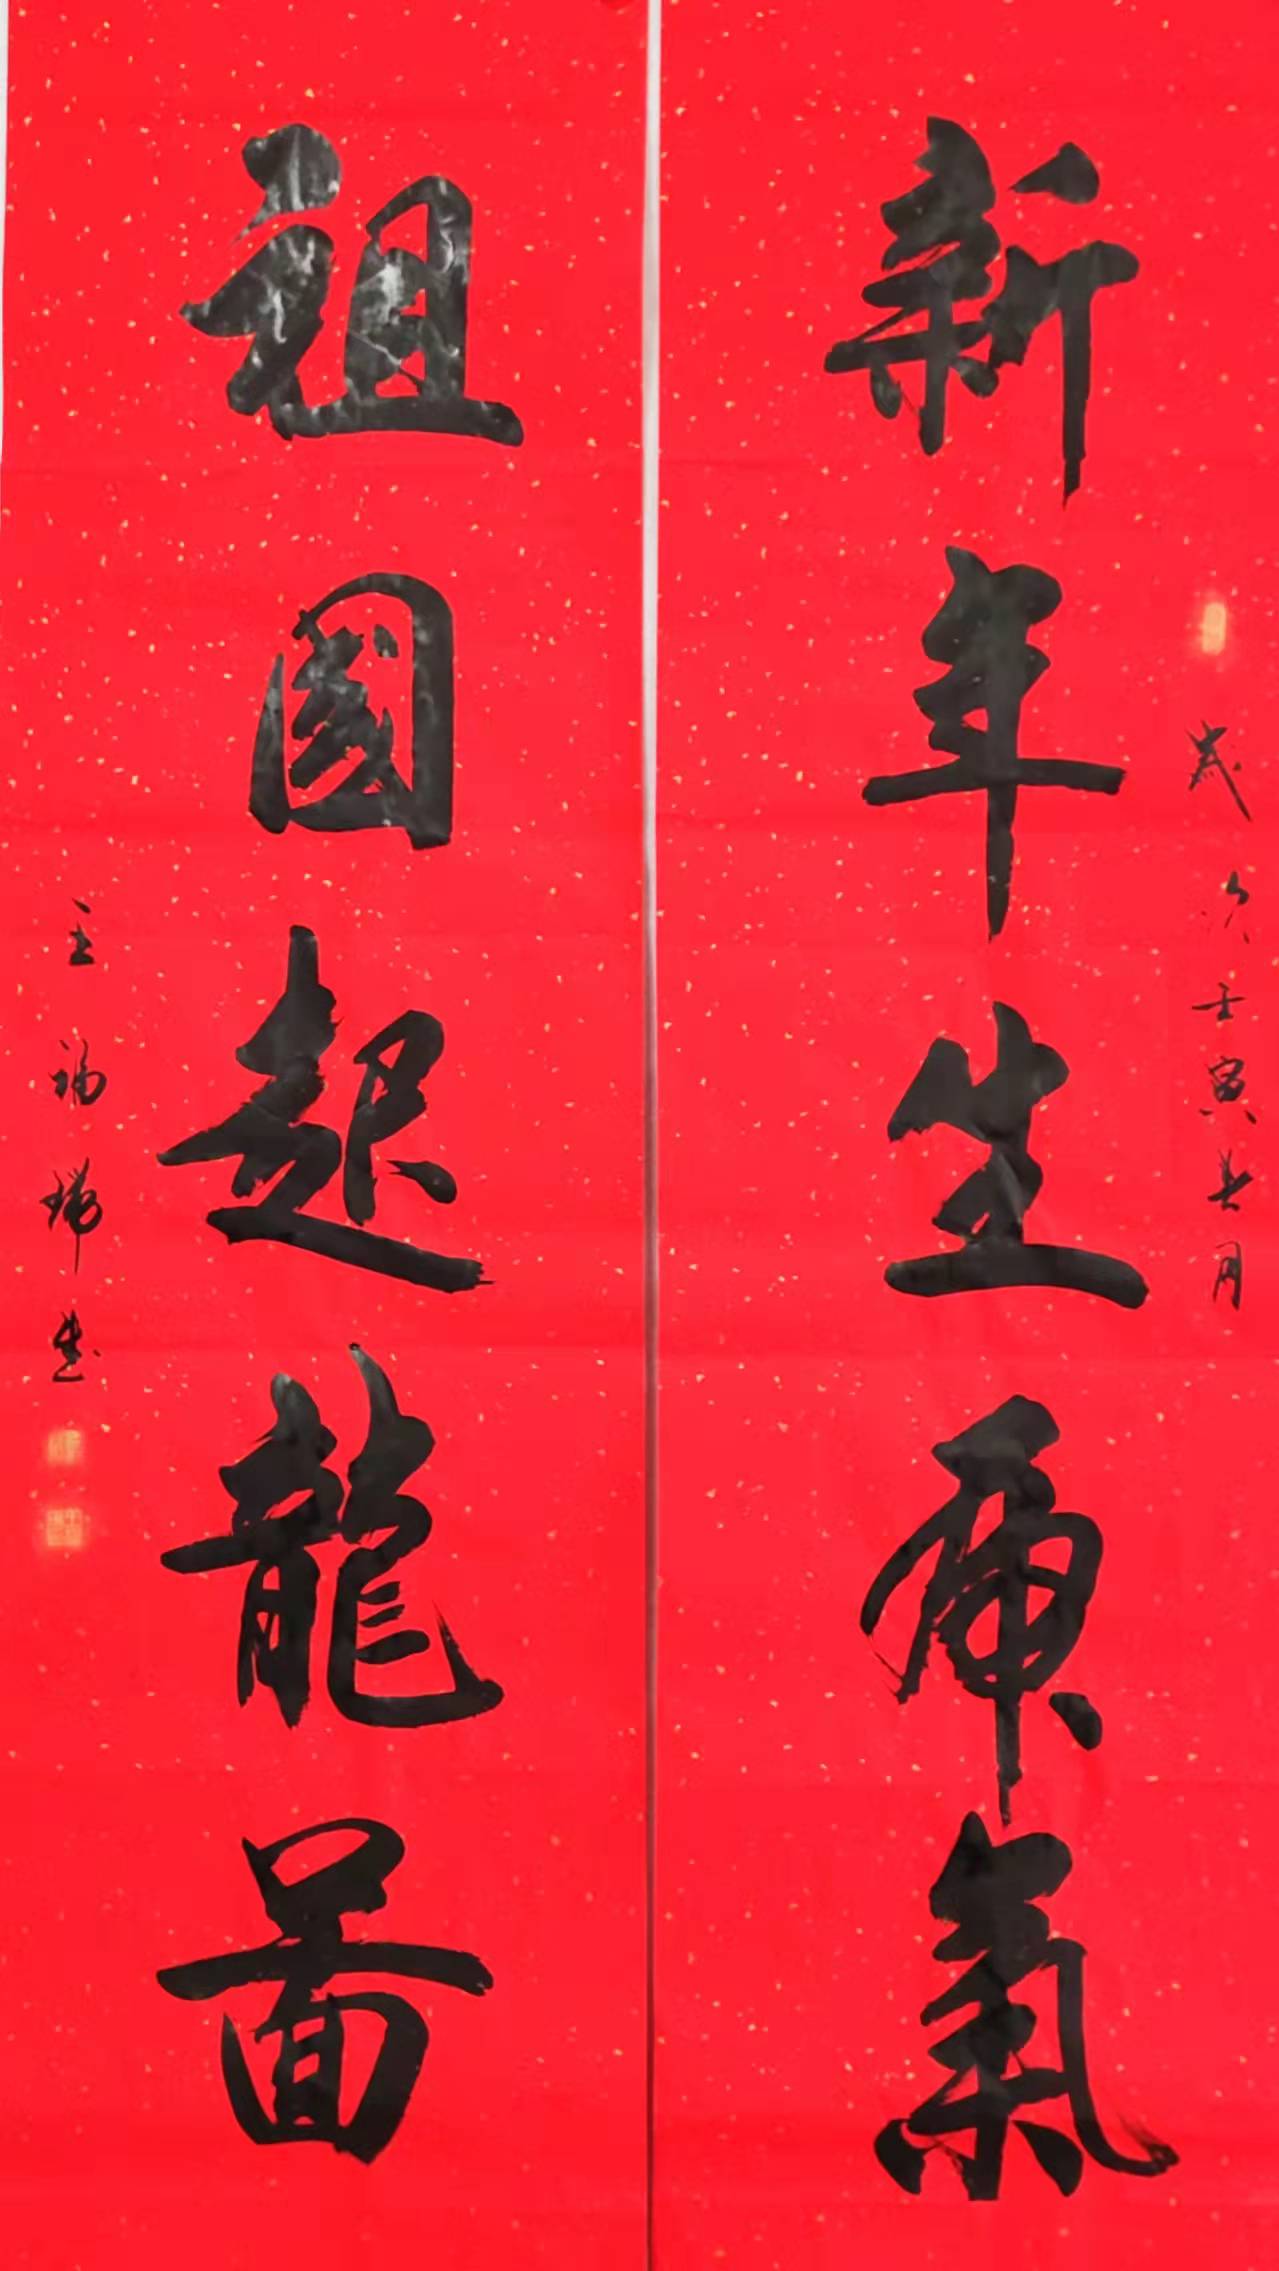 歲次壬寅春月
新年生虎氣
祖國起龍圖
王福瑞書